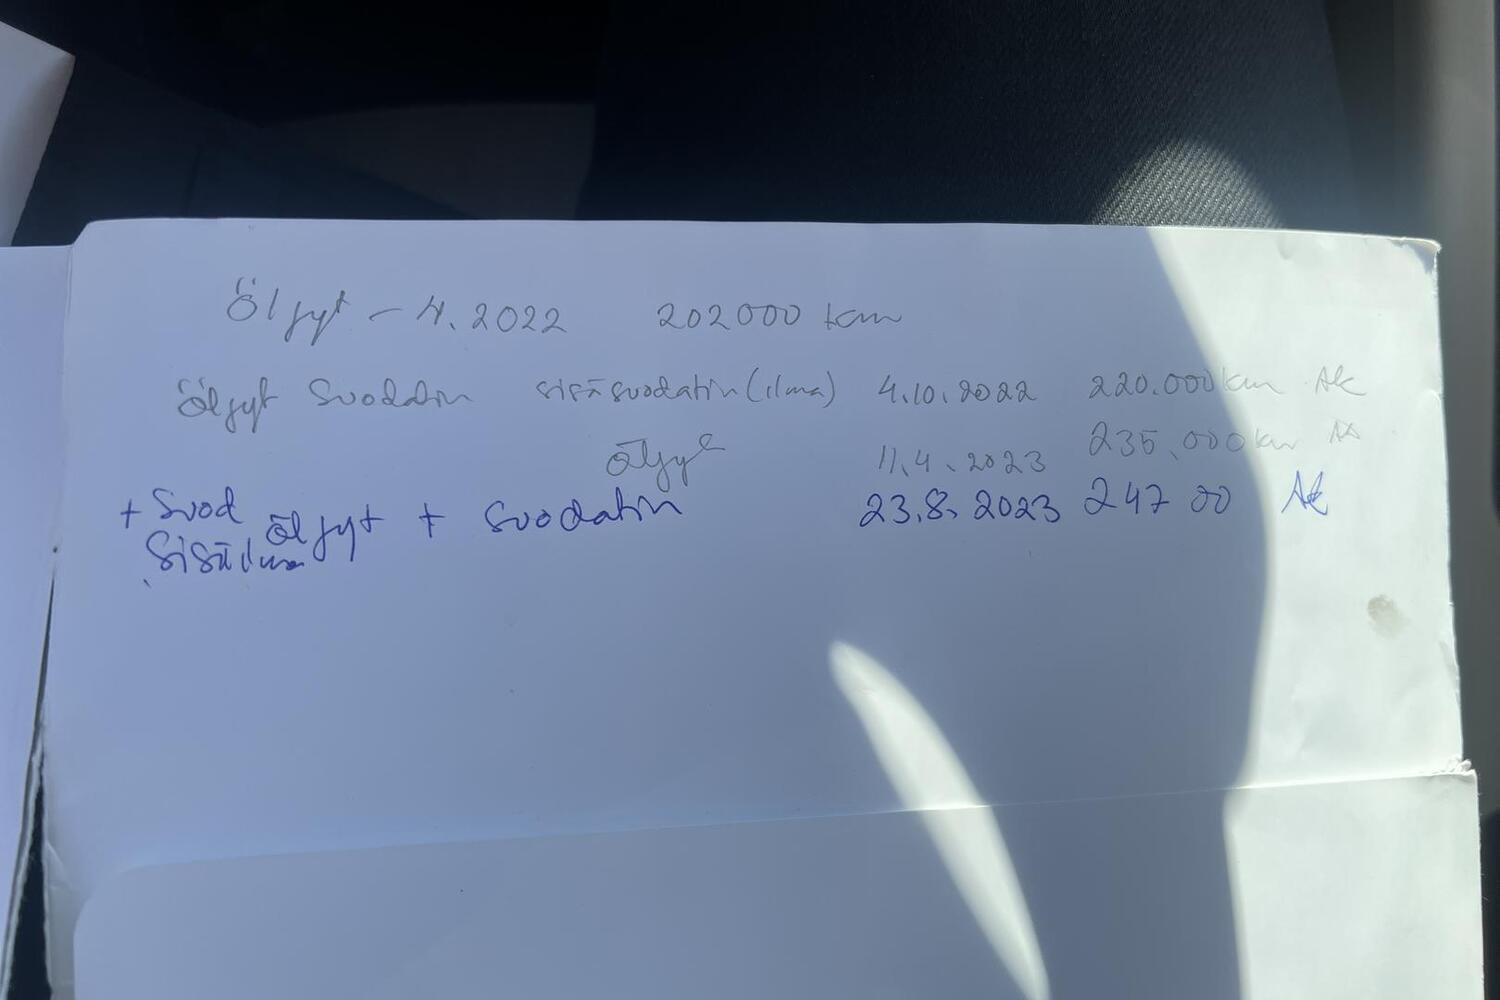 Öljyt – 4.2022 202000 km
Öljyt Suodatin sisäsuodatin (ilma) 4.10.2022 220.000 km AK
Öljyt 11.4.2023 235.000 km AK
+ Suod öljyt + suodatin 23.8.2023 247 00 AK
Sisäilma